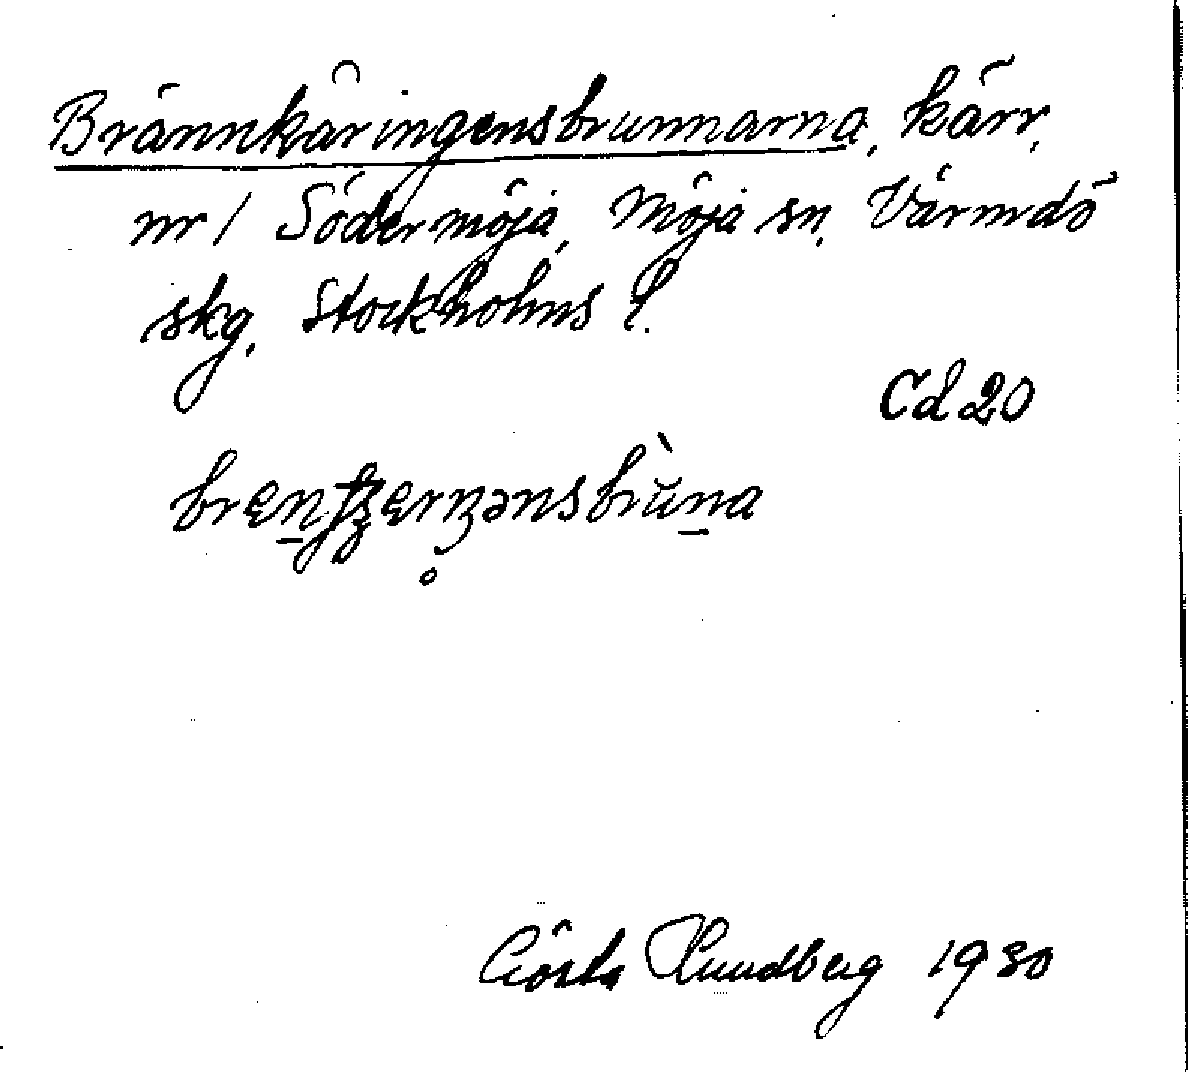 Brännkäringensbrunnarna, kärr,
nr 1 Södermöja, Möja sn, Värmdö
skg, Stockholms l.
Cd 20
Gösta Lundberg 1930